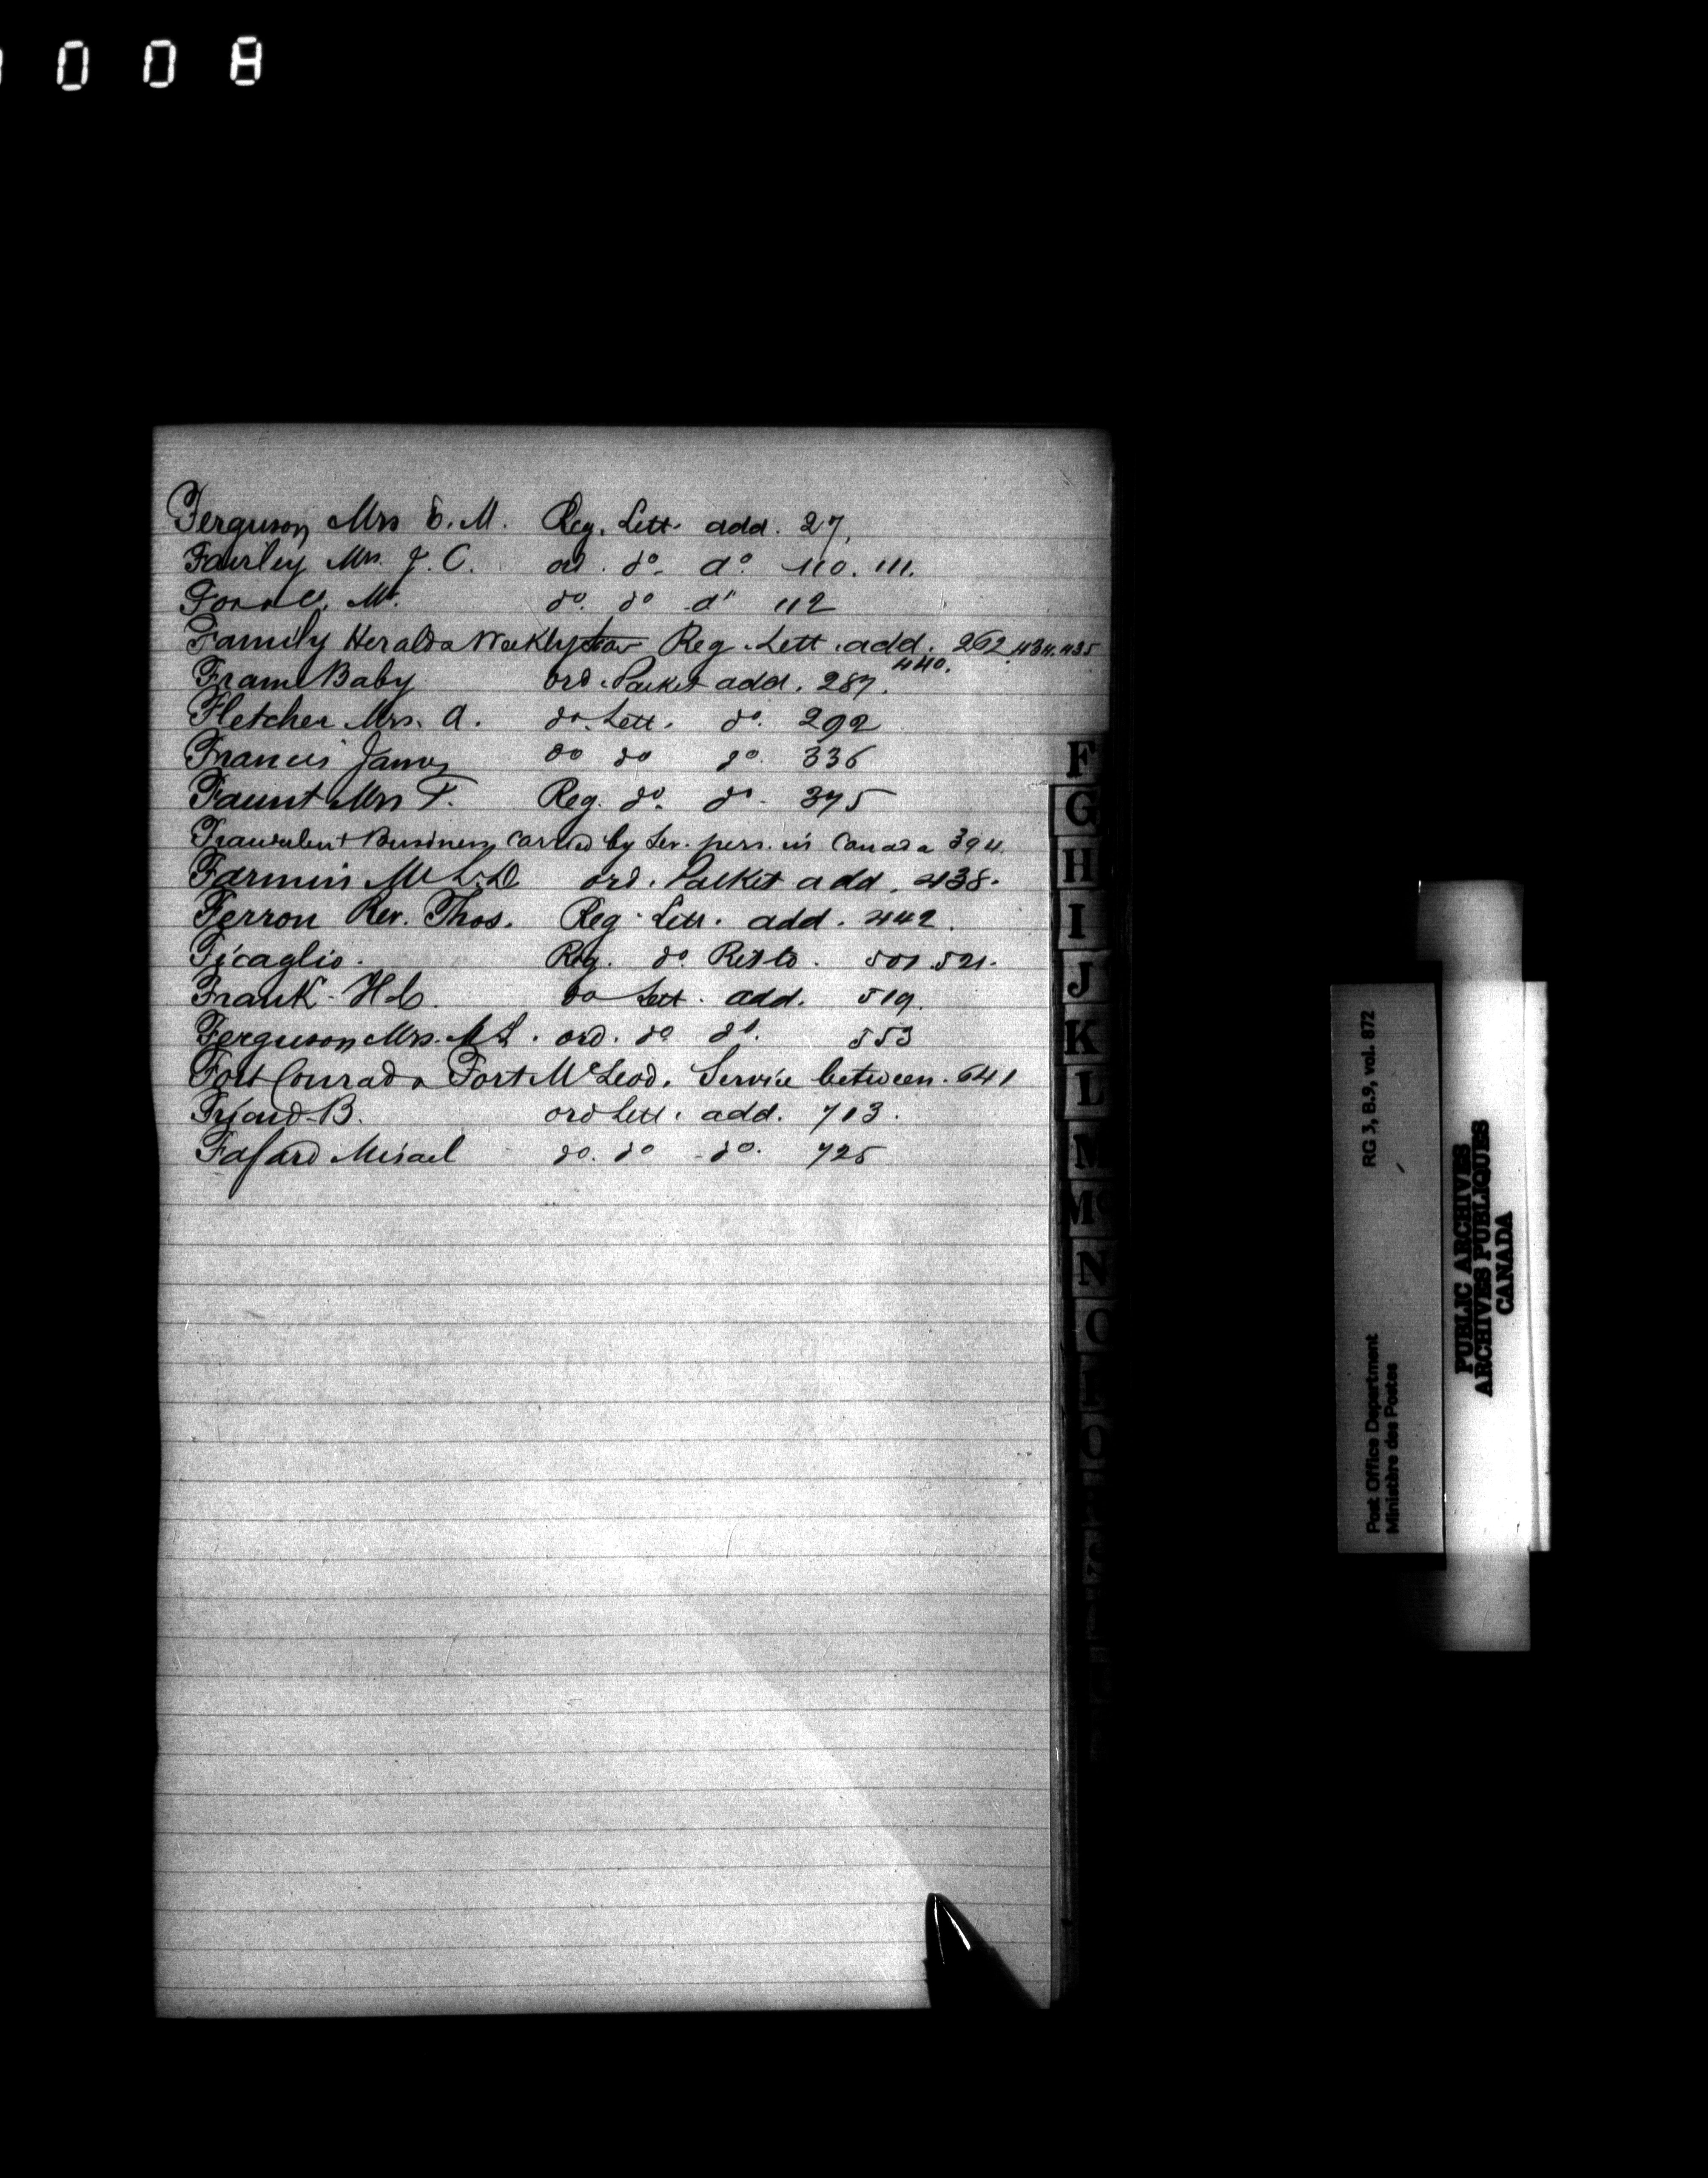 0 0 8
Ferguson Mrs E. M. Reg. Lett. add. 27.
Fairley Mrs. J. C. ord. do. do. 110. 111.
Mr. do. do do 112
Family Herald & Weekly Star Reg. Lett. add. 262. 434. 435
440.
Frame Baby ord. Packet add. 287.
Fletcher Mrs. A. do. Lett. do. 292
Francis James do do do. 336
Faunt Mrs T. Reg. do. do. 375
Fraudulent Business carried by sev. pers. in Canada 394.
Farmin ord. Packet add. 438.
Ferron Rev. Thos. Reg. Lett. add. 442.
Ficaglio. Reg. do. 501. 521.
Frank H. do Lett. add. 519.
Ferguson Mrs. ord. do do. 553
Fort Conrad & Fort McLeod. Service between. 641
B. ord Lett. add. 713.
Fafard Misael do. do do. 725
F
G
H
I
J
K
L
M
Mc
N
O
Post Office Department RG 3, B.9, vol. 872
Ministère des Postes
PUBLIC ARCHIVES
ARCHIVES PUBLIQUES
CANADA